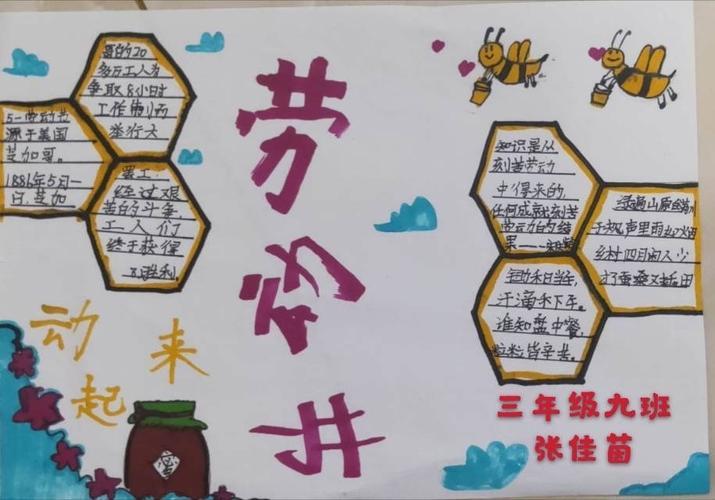 5一劳动节
源于美国
芝加哥。
1881年5月一
日,芝加
哥的20
多万工人为
争取8小时
工作制而
举行大
罢工,
经过艰
苦的斗争
工人们
终于获得
了胜利
劳
动
起
来
蜜
知识是从
刻苦劳动
中得来的
任何成就刻苦
劳动的结
果——
山原
子规声里雨如烟
乡村四月闲人少
才了蚕桑又插田
锄禾日当午,
汗滴禾下午。
谁知盘中餐,
粒粒皆辛苦。
三年级九班
张佳苗